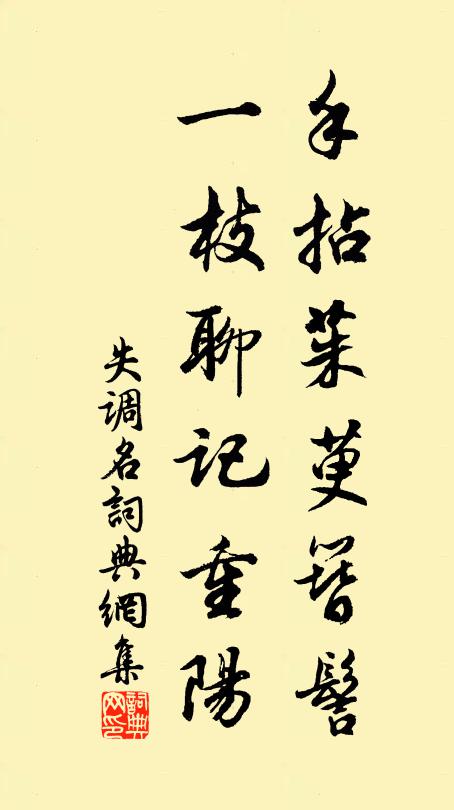 手拈茱萸簪髻
一枝聊记重陽
失调名詞典網集
詞典网印